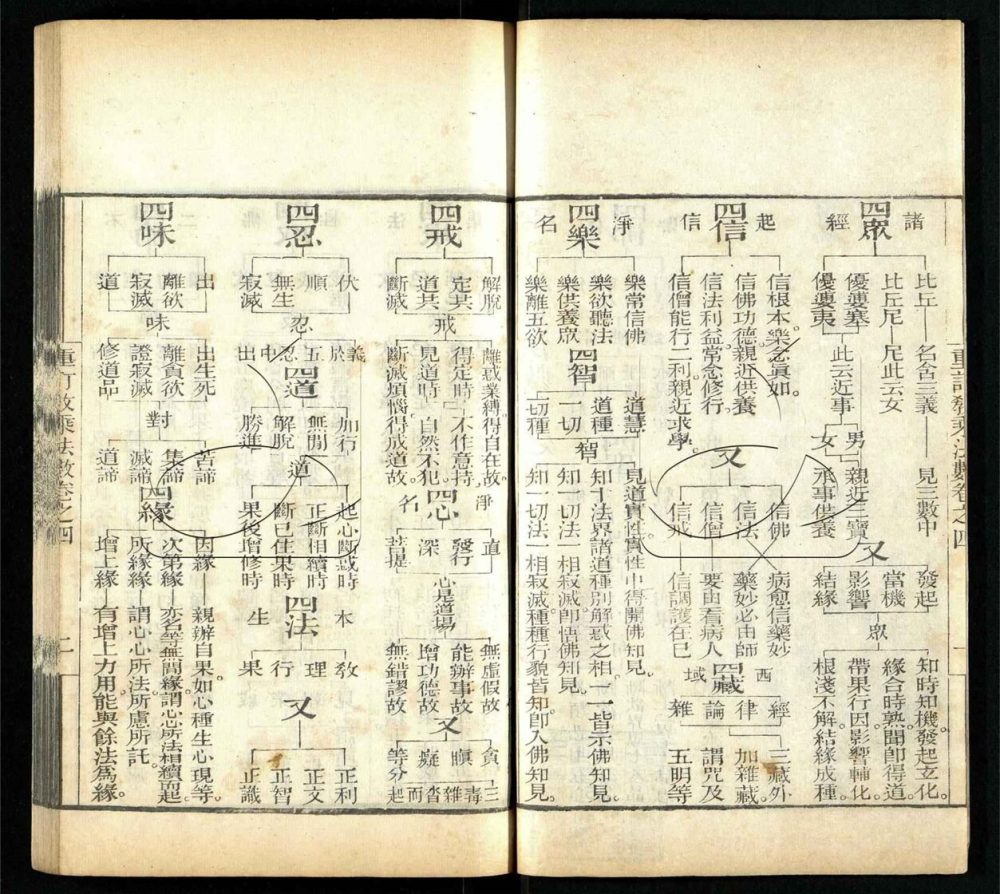 諸經
四眾
比丘 名含三義 見三數中
比丘尼 尼此云女
優婆塞 此云近事 男 親近三寶
優婆夷 女 承事供養
又
發起 知時知機發起立化。
當機 緣合時熟聞即得道。
影響 眾 帶果行因影響輔化。
結緣 根淺不解結緣成種。
起信
四信
信根本樂念眞如。
信佛功德親近供養
信法利益常念修行。
信僧能行二利親近求學。
又
信佛 病愈信藥妙
信法 藥妙必由師
信僧 要由看病人
信戒 信調護在己
西域
四藏
經 三藏外
律 加雜藏。
論 謂咒及
雜 五明等
淨名
四樂
樂常信佛
樂欲聽法
樂供養眾
樂離五欲
四智
道慧 見道實性實性中得開佛知見。
道種 智 知十法界諸道種別解惑之相一一皆示佛知見。
一切 知一切法一相寂滅即悟佛知見。
一切種 知一切法一相寂滅種種行貌皆知即入佛知見。
四戒
解脫 離惑業縛得自在故
定共 戒 得定時 不作意持
道共 見道時 自然不犯
斷滅 斷滅煩惱得成道故
淨名
四心
直 無虛假故
發行 心是道場 能辦事故
深 增功德故
菩提 無錯謬故
又
貪 三
瞋 毒
癡 雜沓
等分 而起
四忍
伏
順
無生 忍
寂滅
義於五忍中出
四道
加行 起心斷惑時
無間 道 正斷相續時
解脫 斷已住果時
勝進 果後增修時
本生
四法
教
理
行
果
又
正利
正文
正智
正識
四味
出 出生死 苦諦
離欲 味 離貪欲 對 集諦
寂滅 證寂滅 滅諦
道 修道品 道諦
四緣
因緣 親辦自果如心種生心現等。
次第緣 亦名等無間緣謂心心所法相續而起。
所緣緣 謂心心所法所慮所託。
增上緣 有增上力用能與餘法爲緣。
重訂教乘法數卷之四